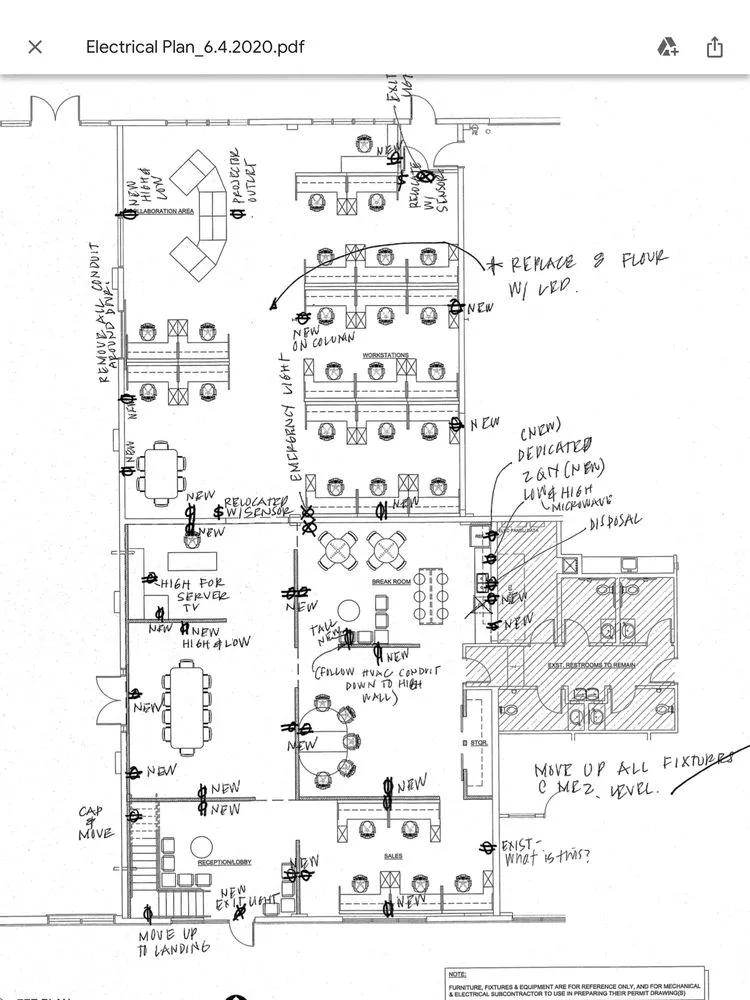 Electrical Plan_6.4.2020.pdf
EXIT
LIGHT
NEW
RELOCATE
W/
SENSOR
NEW
HIGH &
LOW
PROJECTOR
OUTLET
COLLABORATION AREA
REMOVE ALL CONDUIT
* REPLACE
W/ LED.
NEW
NEW
ON COLUMN
WORKSTATIONS
EMERGENCY LIGHT
NEW
NEW
NEW
(NEW)
DEDICATED
2 QTY (NEW)
LOW & HIGH
MICROWAVE
DISPOSAL
NEW
RELOCATED
$ W/SENSOR
NEW
NEW
HIGH FOR
SERVER
TV
BREAK ROOM
NEW
NEW
NEW
NEW
NEW
HIGH & LOW
TALL
NEW
NEW
(FOLLOW HVAC CONDUIT
DOWN TO HIGH
WALL)
EXST. RESTROOMS TO REMAIN
NEW
NEW
STOR.
NEW
MOVE UP ALL FIXTURES
@ MEZ. LEVEL.
NEW
NEW
NEW
CAP
&
MOVE
RECEPTION/LOBBY
SALES
EXIST-
What is this?
NEW
EXIT LIGHT
NEW
MOVE UP
TO LANDING
NOTE:
FURNITURE, FIXTURES & EQUIPMENT ARE FOR REFERENCE ONLY, AND FOR MECHANICAL
& ELECTRICAL SUBCONTRACTOR TO USE IN PREPARING THEIR PERMIT DRAWING(S)